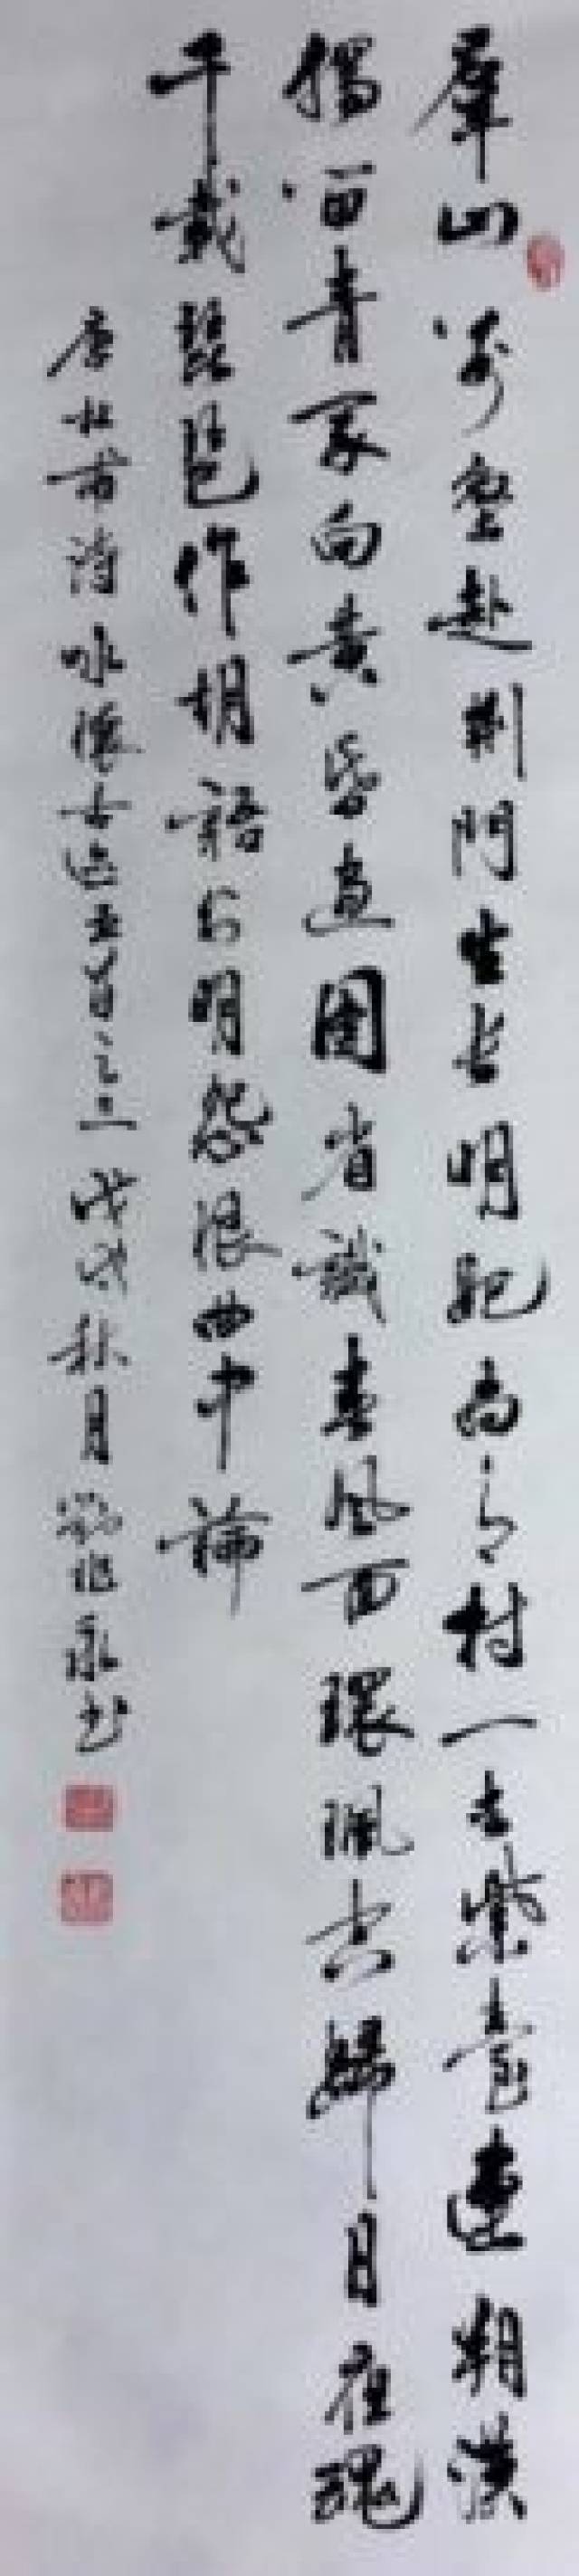 羣山万壑赴荆門生長明妃尚有村一去紫臺連朔漠
獨留青冢向黄昏畫圖省識春風面環珮空歸月夜魂
千載琵琶作胡語分明怨恨曲中論
唐杜甫詩咏懷古迹五首之三戊戌秋月